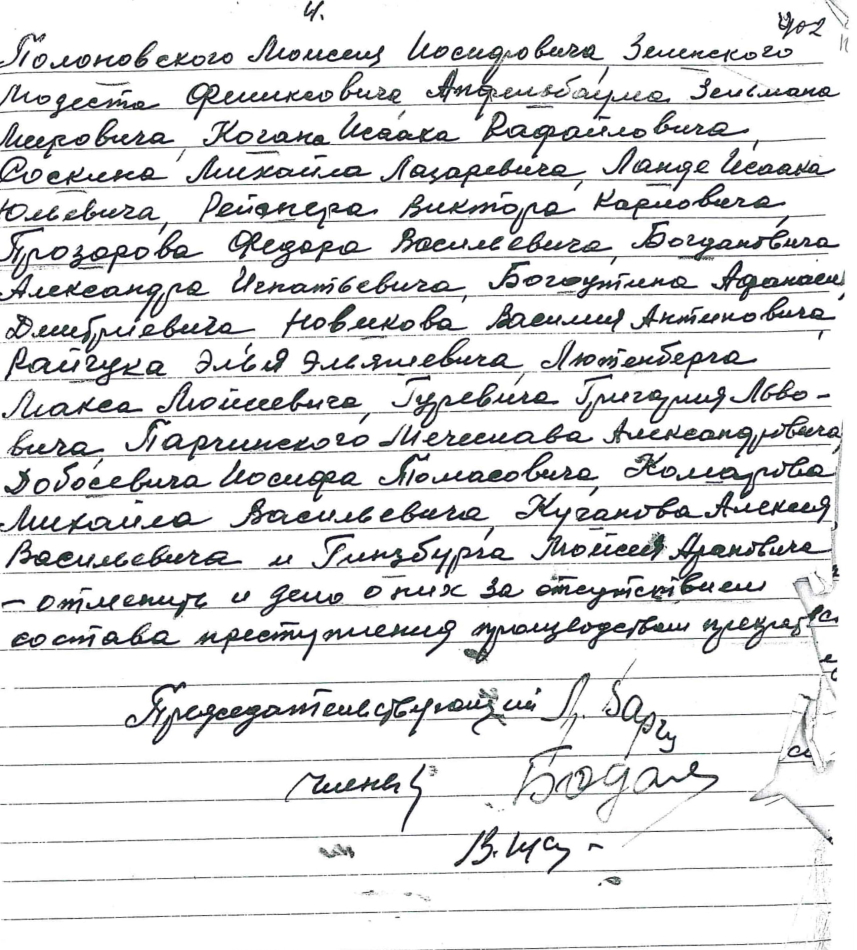 4.
402
Полоновского Моисея Иосифовича, Зеленского
Модеста Феликсовича, Апфельбаума Зельмана
Меировича, Когана Исаака Рафайловича,
Соскина Михайла Лазаревича, Ланде Исаака
Юльевича, Рейснера Виктора Карловича,
Прозарова Федора Васильевича, Богдановича
Александра Игнатьевича, Богоутина Афанасия
Дмитриевича, Новикова Василия Антиновича,
Райчука Элья Эльяшевича, Лютенберга
Макса Мойсеевича, Гуревича Григория Льво-
вича, Парчинского Мечеслава Александровича,
Добосевича Иосифа Томасовича, Комарова
Михайла Васильевича, Кучанова Алексея
Васильевича и Гинзбурга Мойсея Ароновича
- отменить и дело о них за отсутствием
состава преступления производством прекратить
Председательствующий
члены